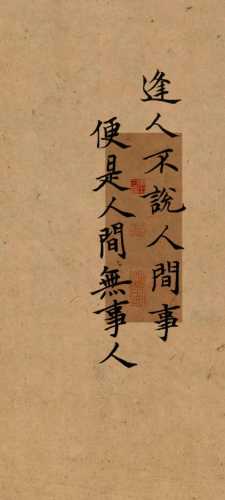 逢人不說人間事
便是人間無事人